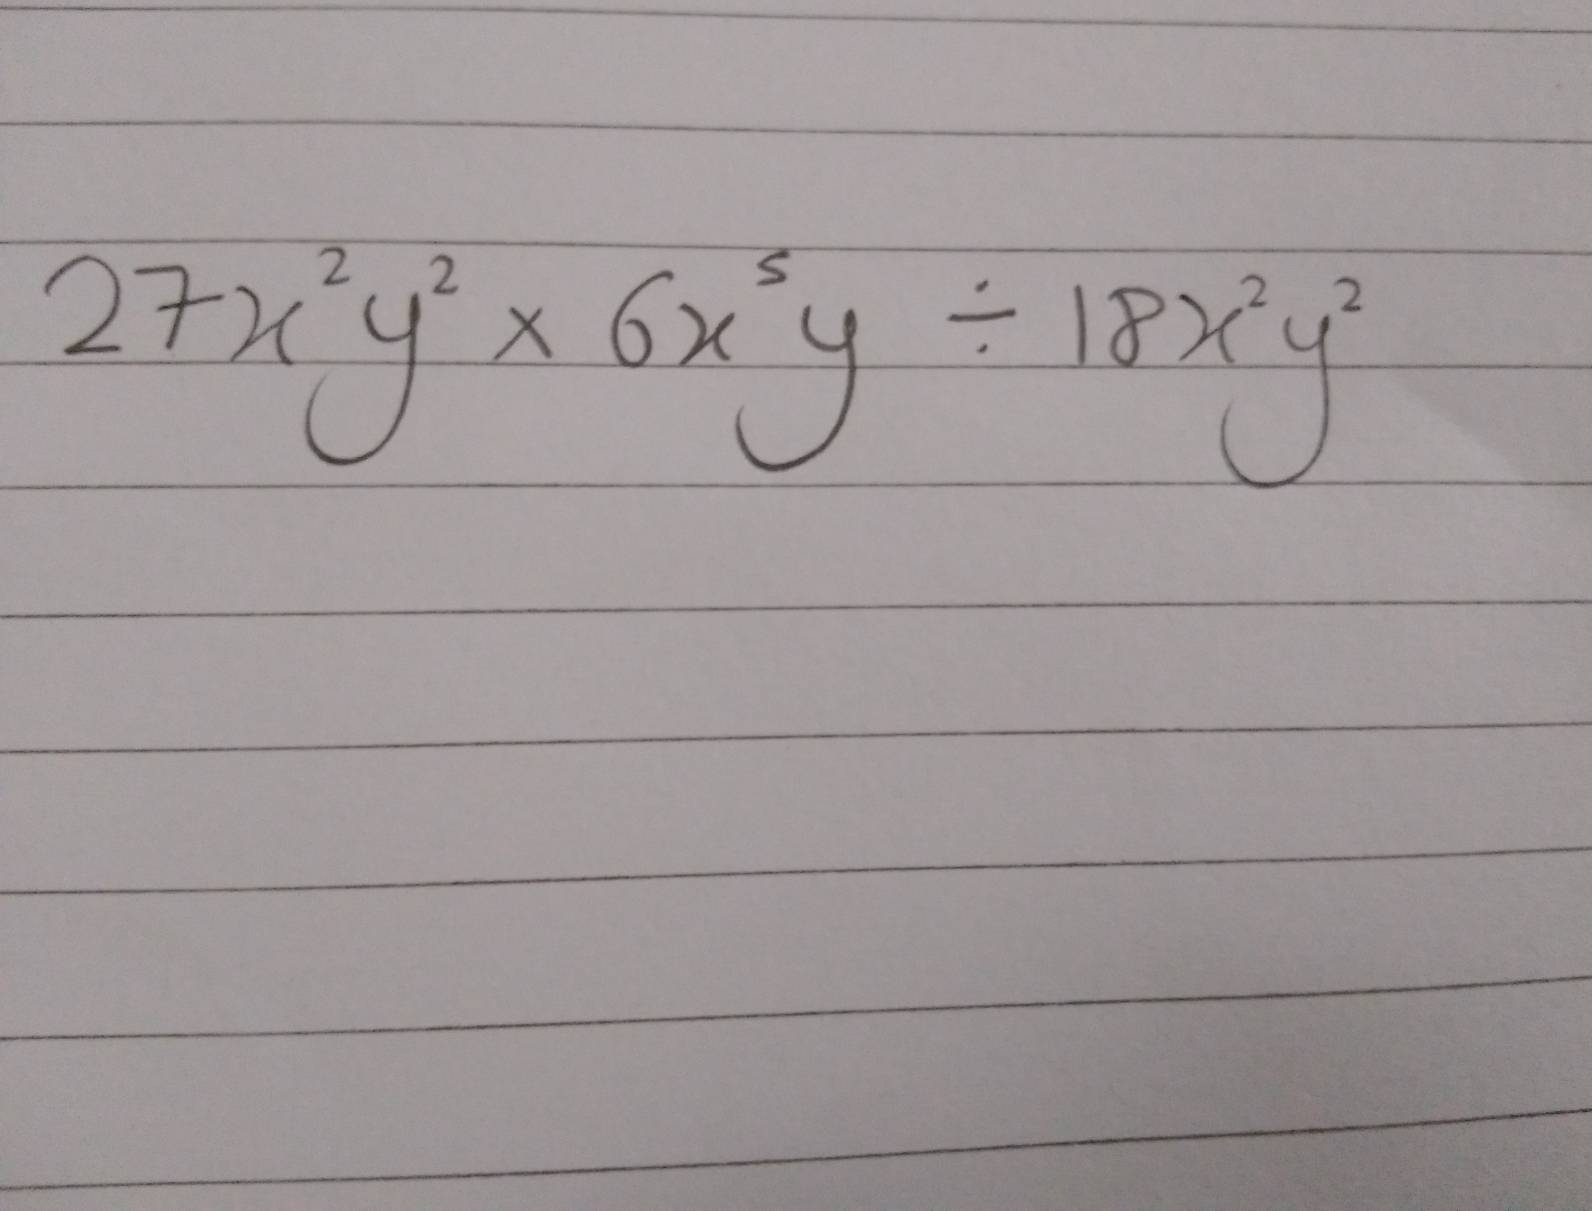 27x²y² × 6x⁵y ÷ 18x²y²